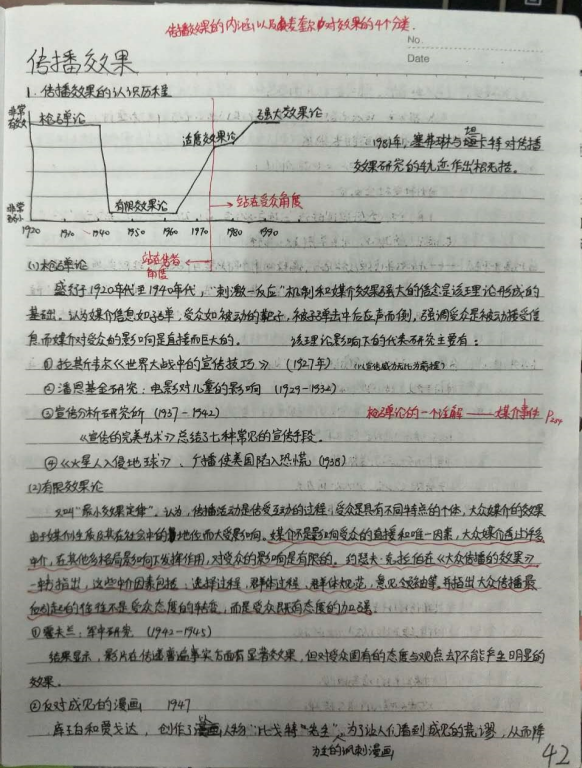 传播效果的内涵,以及麦奎尔对效果的4个分类.
No.
Date
传播效果
1. 传播效果的认识历程
非常有效 枪弹论 适度效果论 强大效果论
1981年,塞弗林与坦卡特对传播
效果研究的轨迹作出概括.
非常弱小 有限效果论 站在受众角度
1920 1910 1940 1950 1960 1970 1980 1990
站在传者角度
(1)枪弹论
盛行于1920年代至1940年代,“刺激—反应”机制和媒介效果强大的信念是该理论形成的
基础,认为媒介信息如子弹,受众如被动的靶子,被子弹击中后应声而倒,强调受众是被动接受信
息,而媒介对受众的影响是直接而巨大的. 该理论影响下的代表研究主要有:
①拉斯韦尔《世界大战中的宣传技巧》 (1927年) (以宣传威力无比为前提)
②潘恩基金研究:电影对儿童的影响 (1929-1932)
③宣传分析研究所 (1937-1942) 枪弹论的一个注解——媒介事件
《宣传的完美艺术》总结了七种常见的宣传手段.
④《火星人入侵地球》、广播使美国陷入恐慌 (1938)
(2)有限效果论
又叫“最小效果定律”.认为,传播活动是传受互动的过程,受众是具有不同特点的个体,大众媒介的效果
由于媒介性质及其在社会中的地位而大受影响.媒介不是影响受众的直接和唯一因素,大众媒介透过许多
中介,在其他多格局影响下发挥作用,对受众的影响是有限的. 约瑟夫·克拉伯在《大众传播的效果》
一书指出,这些中介因素包括:选择过程,群体过程,群体规范,意见领袖等.并指出大众传播最
可能引起的往往不是受众态度的转变,而是受众既有态度的加强.
①霍夫兰:军中研究 (1942-1945)
结果显示,影片在传递普遍事实方面有显著效果,但对受众固有的态度与观点却不能产生明显的
效果.
②反对成见的漫画 1947
库珀和贾戈达,创作了以漫画人物“比戈特”先生为主的讽刺漫画,为了让人们看到成见的荒谬,从而降
42